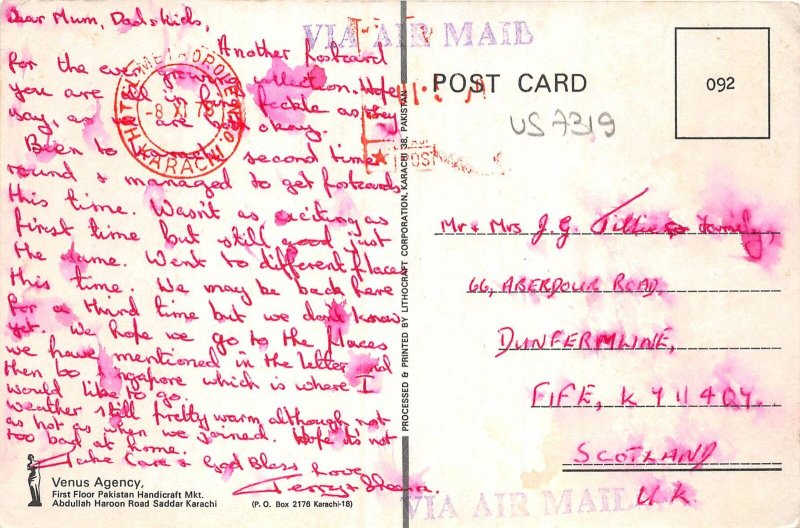 Dear Mum, Dad & kids,
Another postcard
for the ever growing collection. Hope
you are all in fine fettle as they
say, as we are okay.
Been to second time
round & managed to get postcards
this time. Wasn't as exciting as
first time but still good just
the same. Went to different places
this time. We may be back here
for a third time but we don't know
yet. We hope we go to the places
we have mentioned in the letter and
then to Singapore which is where I
would like to go.
Weather still pretty warm although not
as hot as when we joined. Hope its not
too bad at home.
Take Care & God Bless
Love
Terry &
Venus Agency,
First Floor Pakistan Handicraft Mkt.
Abdullah Haroon Road Saddar Karachi
(P. O. Box 2176 Karachi-18)
METROPOLE
KARACHI
-8 XI 76
PROCESSED & PRINTED BY LITHOCRAFT CORPORATION, KARACHI 38, PAKISTAN
VIA AIR MAIL
POST CARD
092
US 7319
Mr & Mrs J.G. & family,
66, ABERDOUR ROAD,
DUNFERMLINE,
FIFE, KY11 4QY.
SCOTLAND
U.K.
VIA AIR MAIL